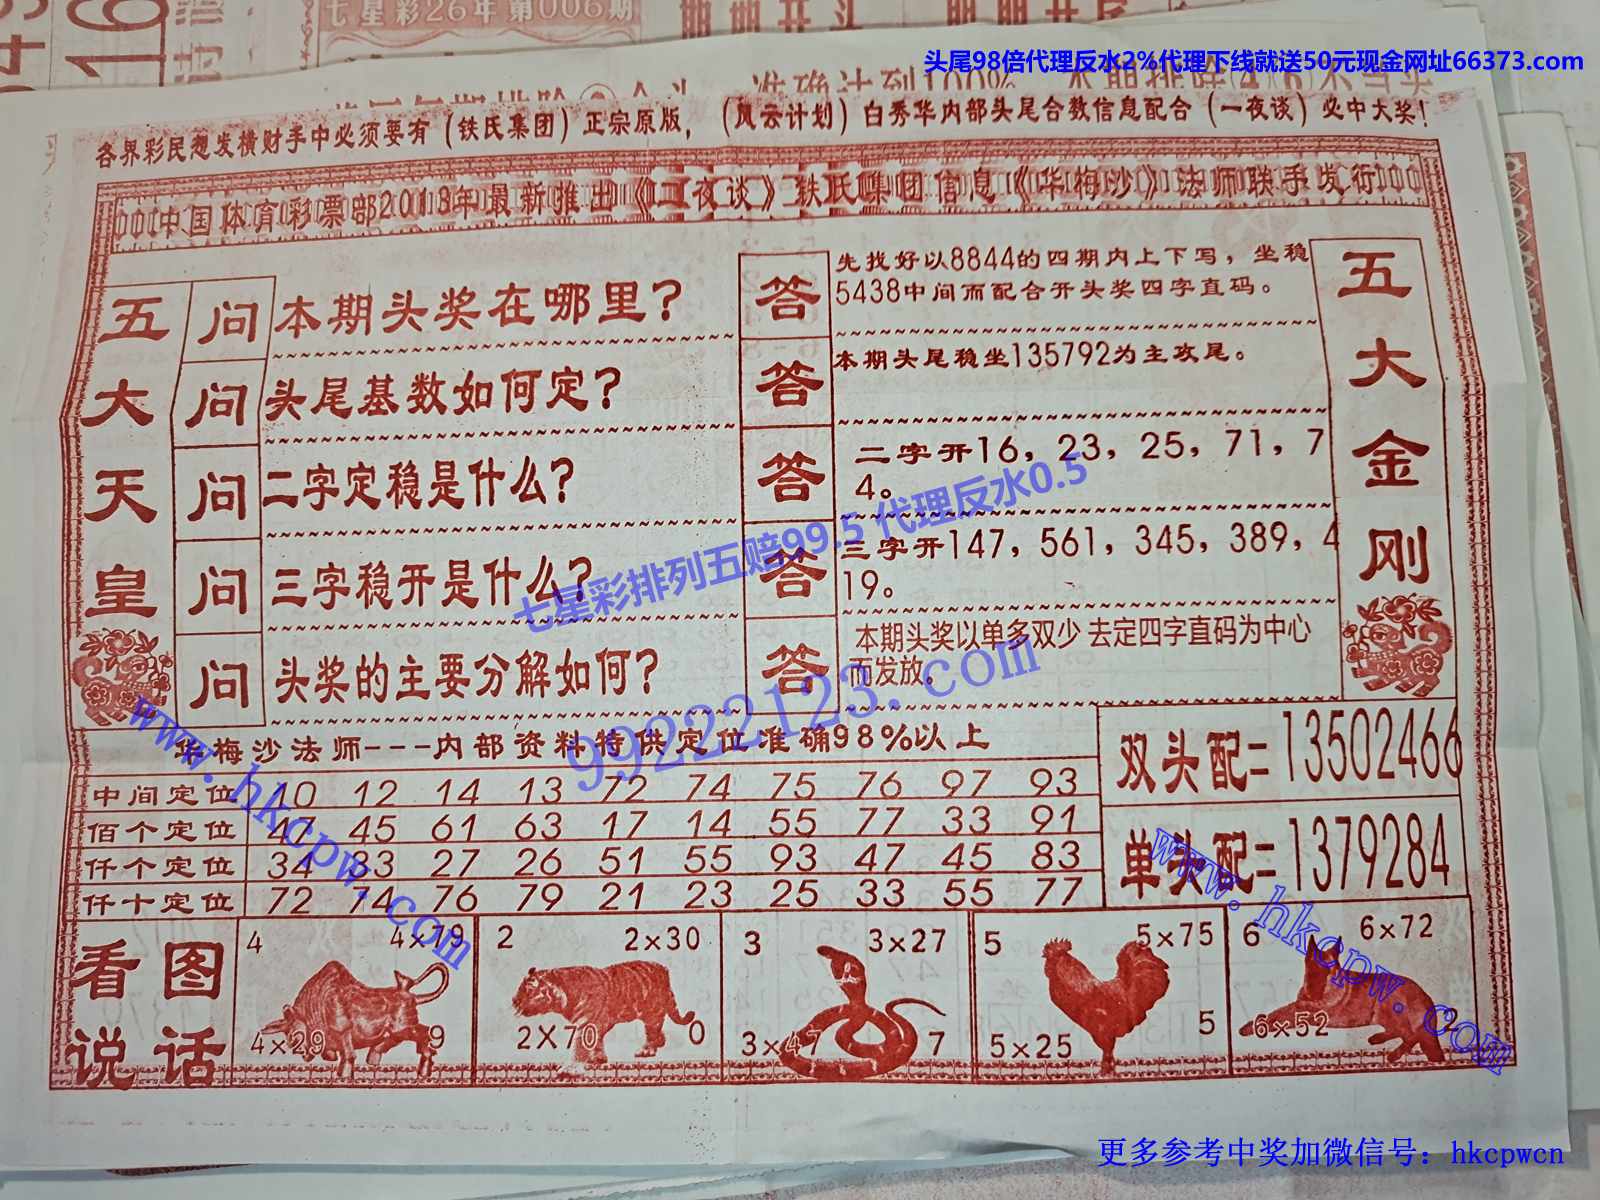 七星彩26年第006期
头尾98倍代理反水2%代理下线就送50元现金网址66373.com
各界彩民想发横财手中必须要有（铁氏集团）正宗原版，（风云计划）白秀华内部头尾合数信息配合（一夜谈）必中大奖！
中国体育彩票部2013年最新推出《一夜谈》铁氏集团信息《华梅沙》法师联手发行
五大天皇
问 本期头奖在哪里？
答 先找好以8844的四期内上下写，坐稳
5438中间而配合开头奖四字直码。
问 头尾基数如何定？
答 本期头尾稳坐135792为主攻尾。
问 二字定稳是什么？
答 二字开16，23，25，71，7
4。
问 三字稳开是什么？
答 三字开147，561，345，389，4
19。
问 头奖的主要分解如何？
答 本期头奖以单多双少 去定四字直码为中心
而发放。
五大金刚
七星彩排列五赔99.5 代理反水0.5
99222123.com
华梅沙法师---内部资料特供定位准确98%以上
中间定位 10 12 14 13 72 74 75 76 97 93
佰个定位 47 45 61 63 17 14 55 77 33 91
仟个定位 34 33 27 26 51 55 93 47 45 83
仟十定位 72 74 76 79 21 23 25 33 55 77
双头配=13502466
单头配=1379284
www.hkcpw.com
www.hkcpw.com
看图
说话
4 4×79
4×29 9
2 2×30
2×70 0
3 3×27
3×47 7
5 5×75
5×25 5
6 6×72
6×52 2
更多参考中奖加微信号：hkcpwcn